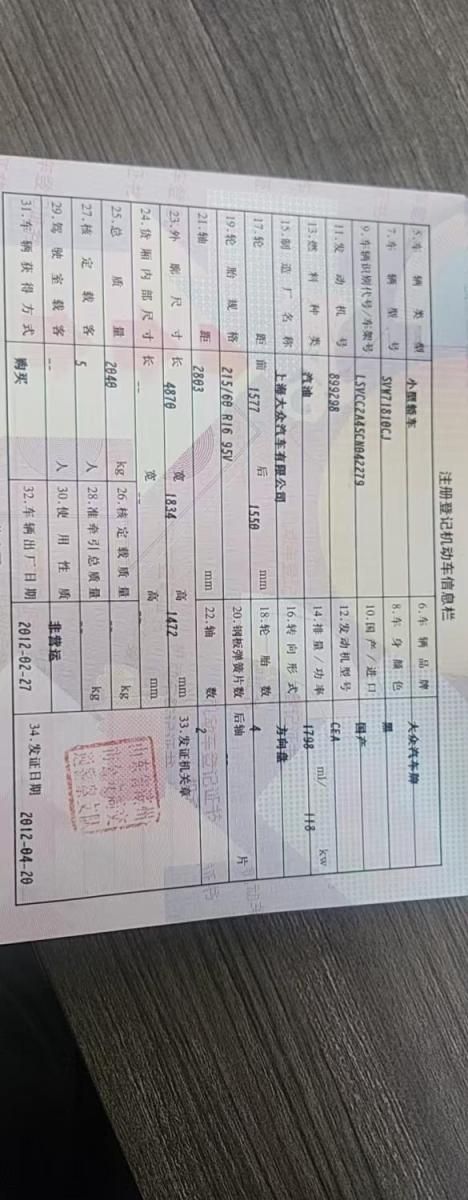 注册登记机动车信息栏
5.车辆类型 小型轿车 6.车辆品牌 大众汽车牌
7.车辆型号 SVW71810CJ 8.车身颜色 黑
9.车辆识别代号/车架号 LSVCC2A45CN042279 10.国产/进口 国产
11.发动机号 899298 12.发动机型号 CEA
13.燃料种类 汽油 14.排量/功率 1798 ml/ 118 kw
15.制造厂名称 上海大众汽车有限公司 16.转向形式 方向盘
17.轮距 前 1577 后 1550 mm 18.轮胎数 4
19.轮胎规格 215/60 R16 95V 20.钢板弹簧片数 后轴 -- 片
21.轴距 2803 mm 22.轴数 2
23.外廓尺寸 长 4870 宽 1834 高 1472 mm 33.发证机关章
24.货厢内部尺寸 长 -- 宽 -- 高 -- mm
25.总质量 2040 kg 26.核定载质量 -- kg
27.核定载客 5 人 28.准牵引总质量 -- kg
29.驾驶室载客 -- 人 30.使用性质 非营运
31.车辆获得方式 购买 32.车辆出厂日期 2012-02-27 34.发证日期 2012-04-20